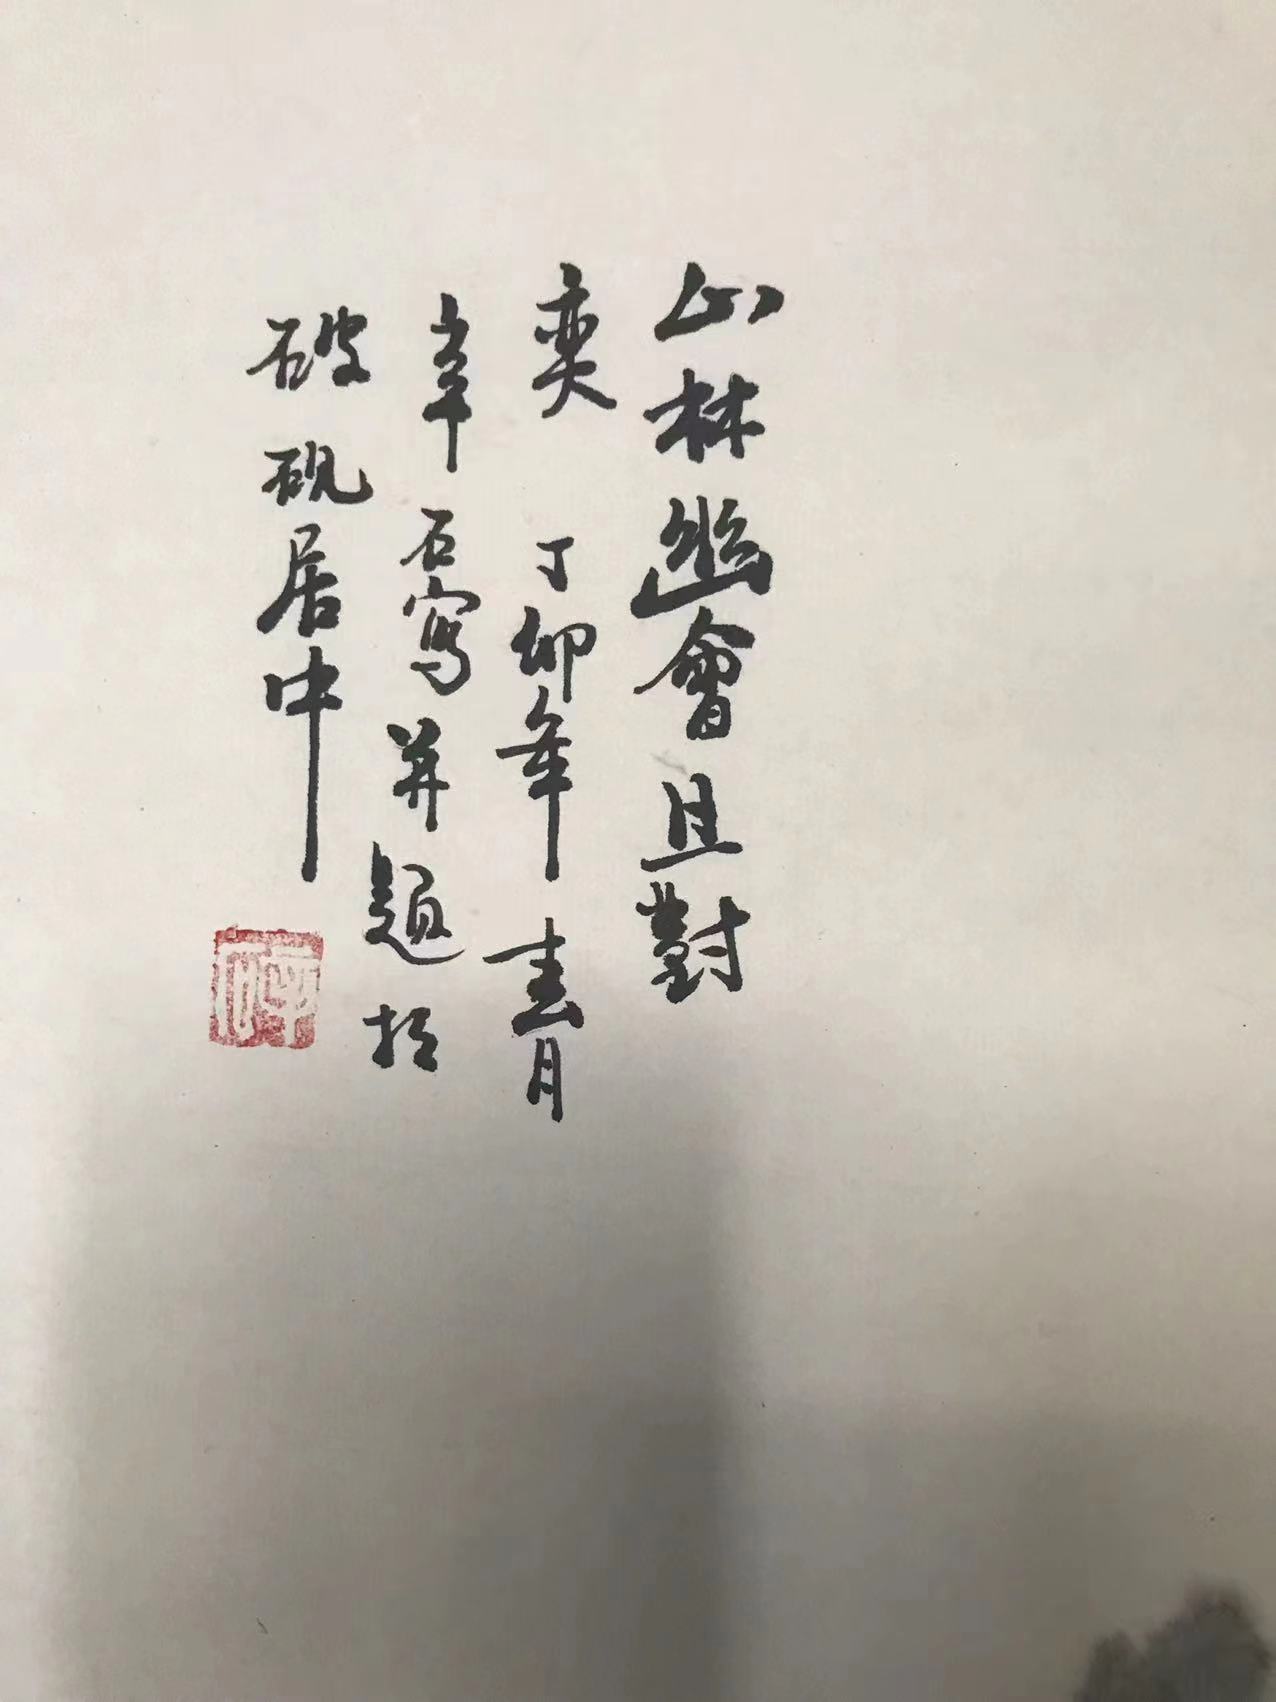 山林幽會且對
奕 丁卯年春月
辛石寫并題於
破硯居中
辛石